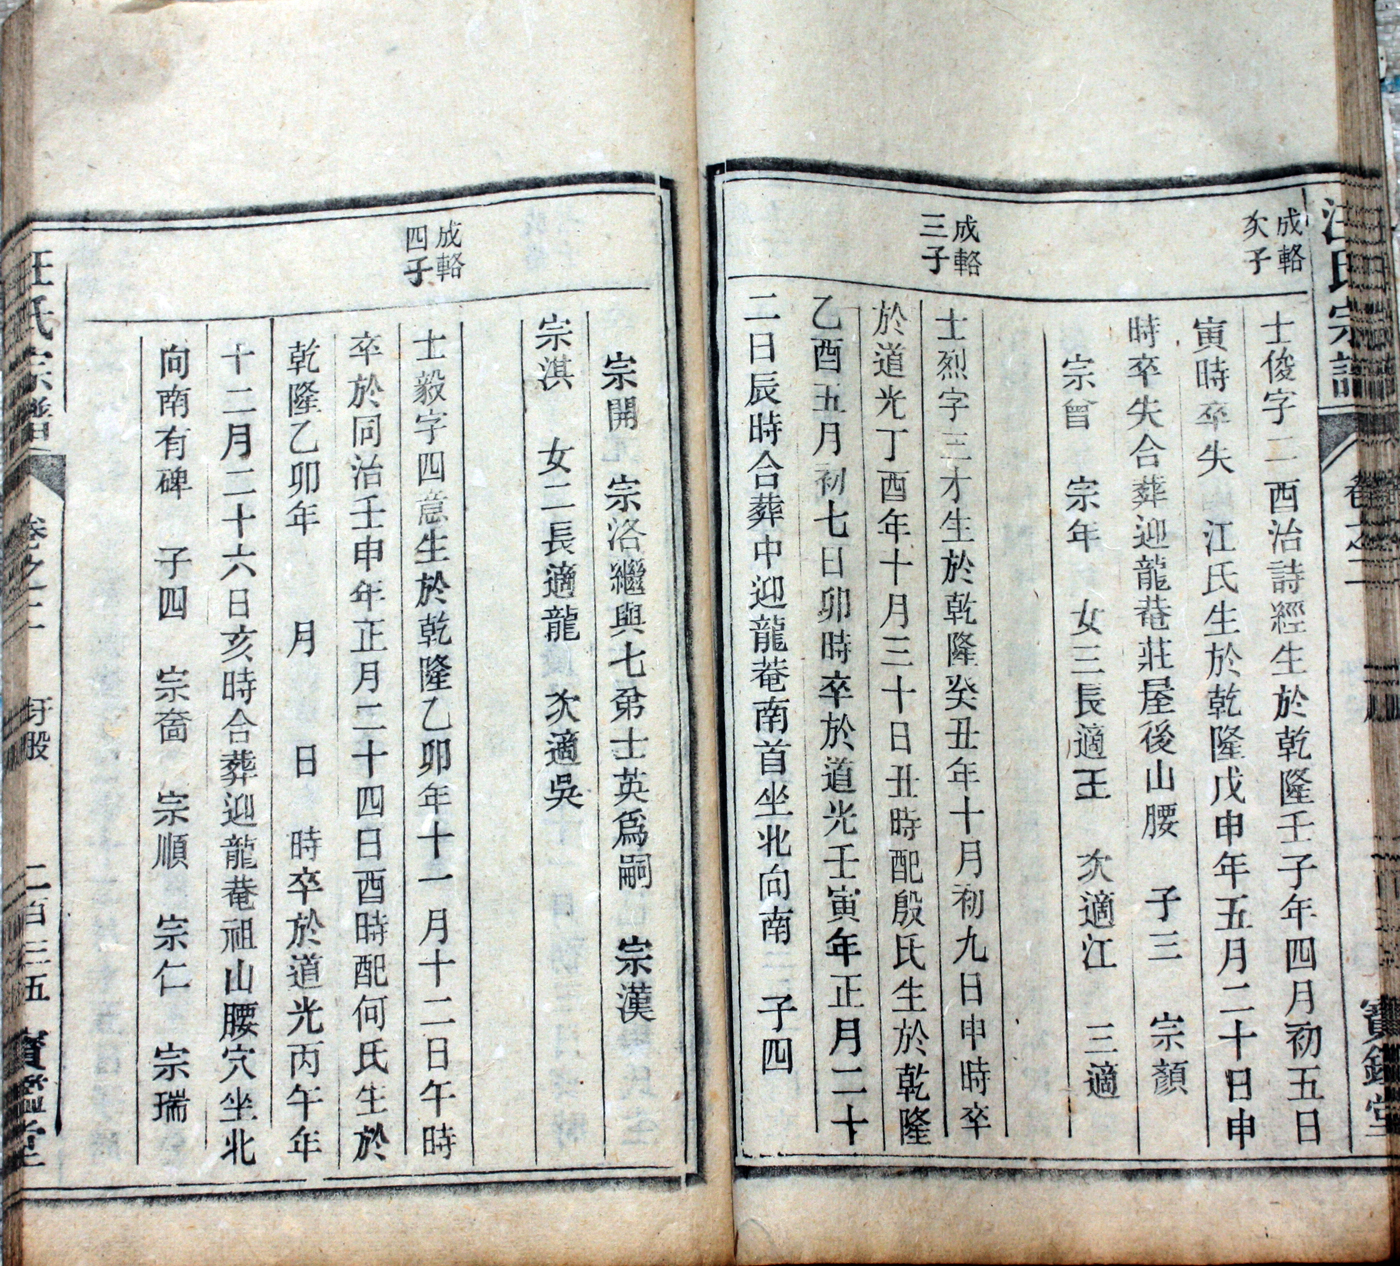 汪氏宗譜
卷之二
寶鑑堂
成輅
次子
士俊字二酉治詩經生於乾隆壬子年四月初五日
寅時卒失 江氏生於乾隆戊申年五月二十日申
時卒失合葬迎龍菴莊屋後山腰 子三 宗顏
宗曾 宗年 女三長適王 次適江 三適
成輅
三子
士烈字三才生於乾隆癸丑年十月初九日申時卒
於道光丁酉年十月三十日丑時配殷氏生於乾隆
乙酉五月初七日卯時卒於道光壬寅年正月二十
二日辰時合葬中迎龍菴南首坐北向南 子四
宗開 宗洛繼與七弟士英爲嗣 宗漢
宗淇 女二長適龍 次適吳
成輅
四子
士毅字四意生於乾隆乙卯年十一月十二日午時
卒於同治壬申年正月二十四日酉時配何氏生於
乾隆乙卯年 月 日 時卒於道光丙午年
十二月二十六日亥時合葬迎龍菴祖山腰穴坐北
向南有碑 子四 宗喬 宗順 宗仁 宗瑞
汪氏宗譜
卷之二
二百三五
寶鑑堂